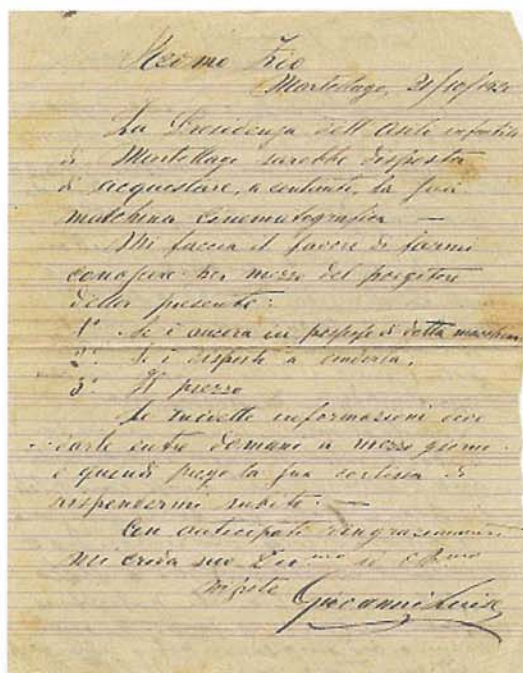 Zio
Martellago, 21/10/192
La Presidenza dell'Asilo infantile
di Martellago sarebbe disposta
di acquistare, a contanti, la sua
macchina cinematografica —
Mi faccia il favore di farmi
conoscere per mezzo del porgitore
della presente:
1° Se è ancora in possesso di detta macchina
2° Se è disposto a venderla.
3° Il prezzo
Le suddette informazioni devo
darle entro domani a mezzo giorno
e quindi prego la sua cortesia di
rispondermi subito. —
Con anticipati ringraziamenti
mi creda suo Dev.mo ed obb.mo
nipote
Giovanni